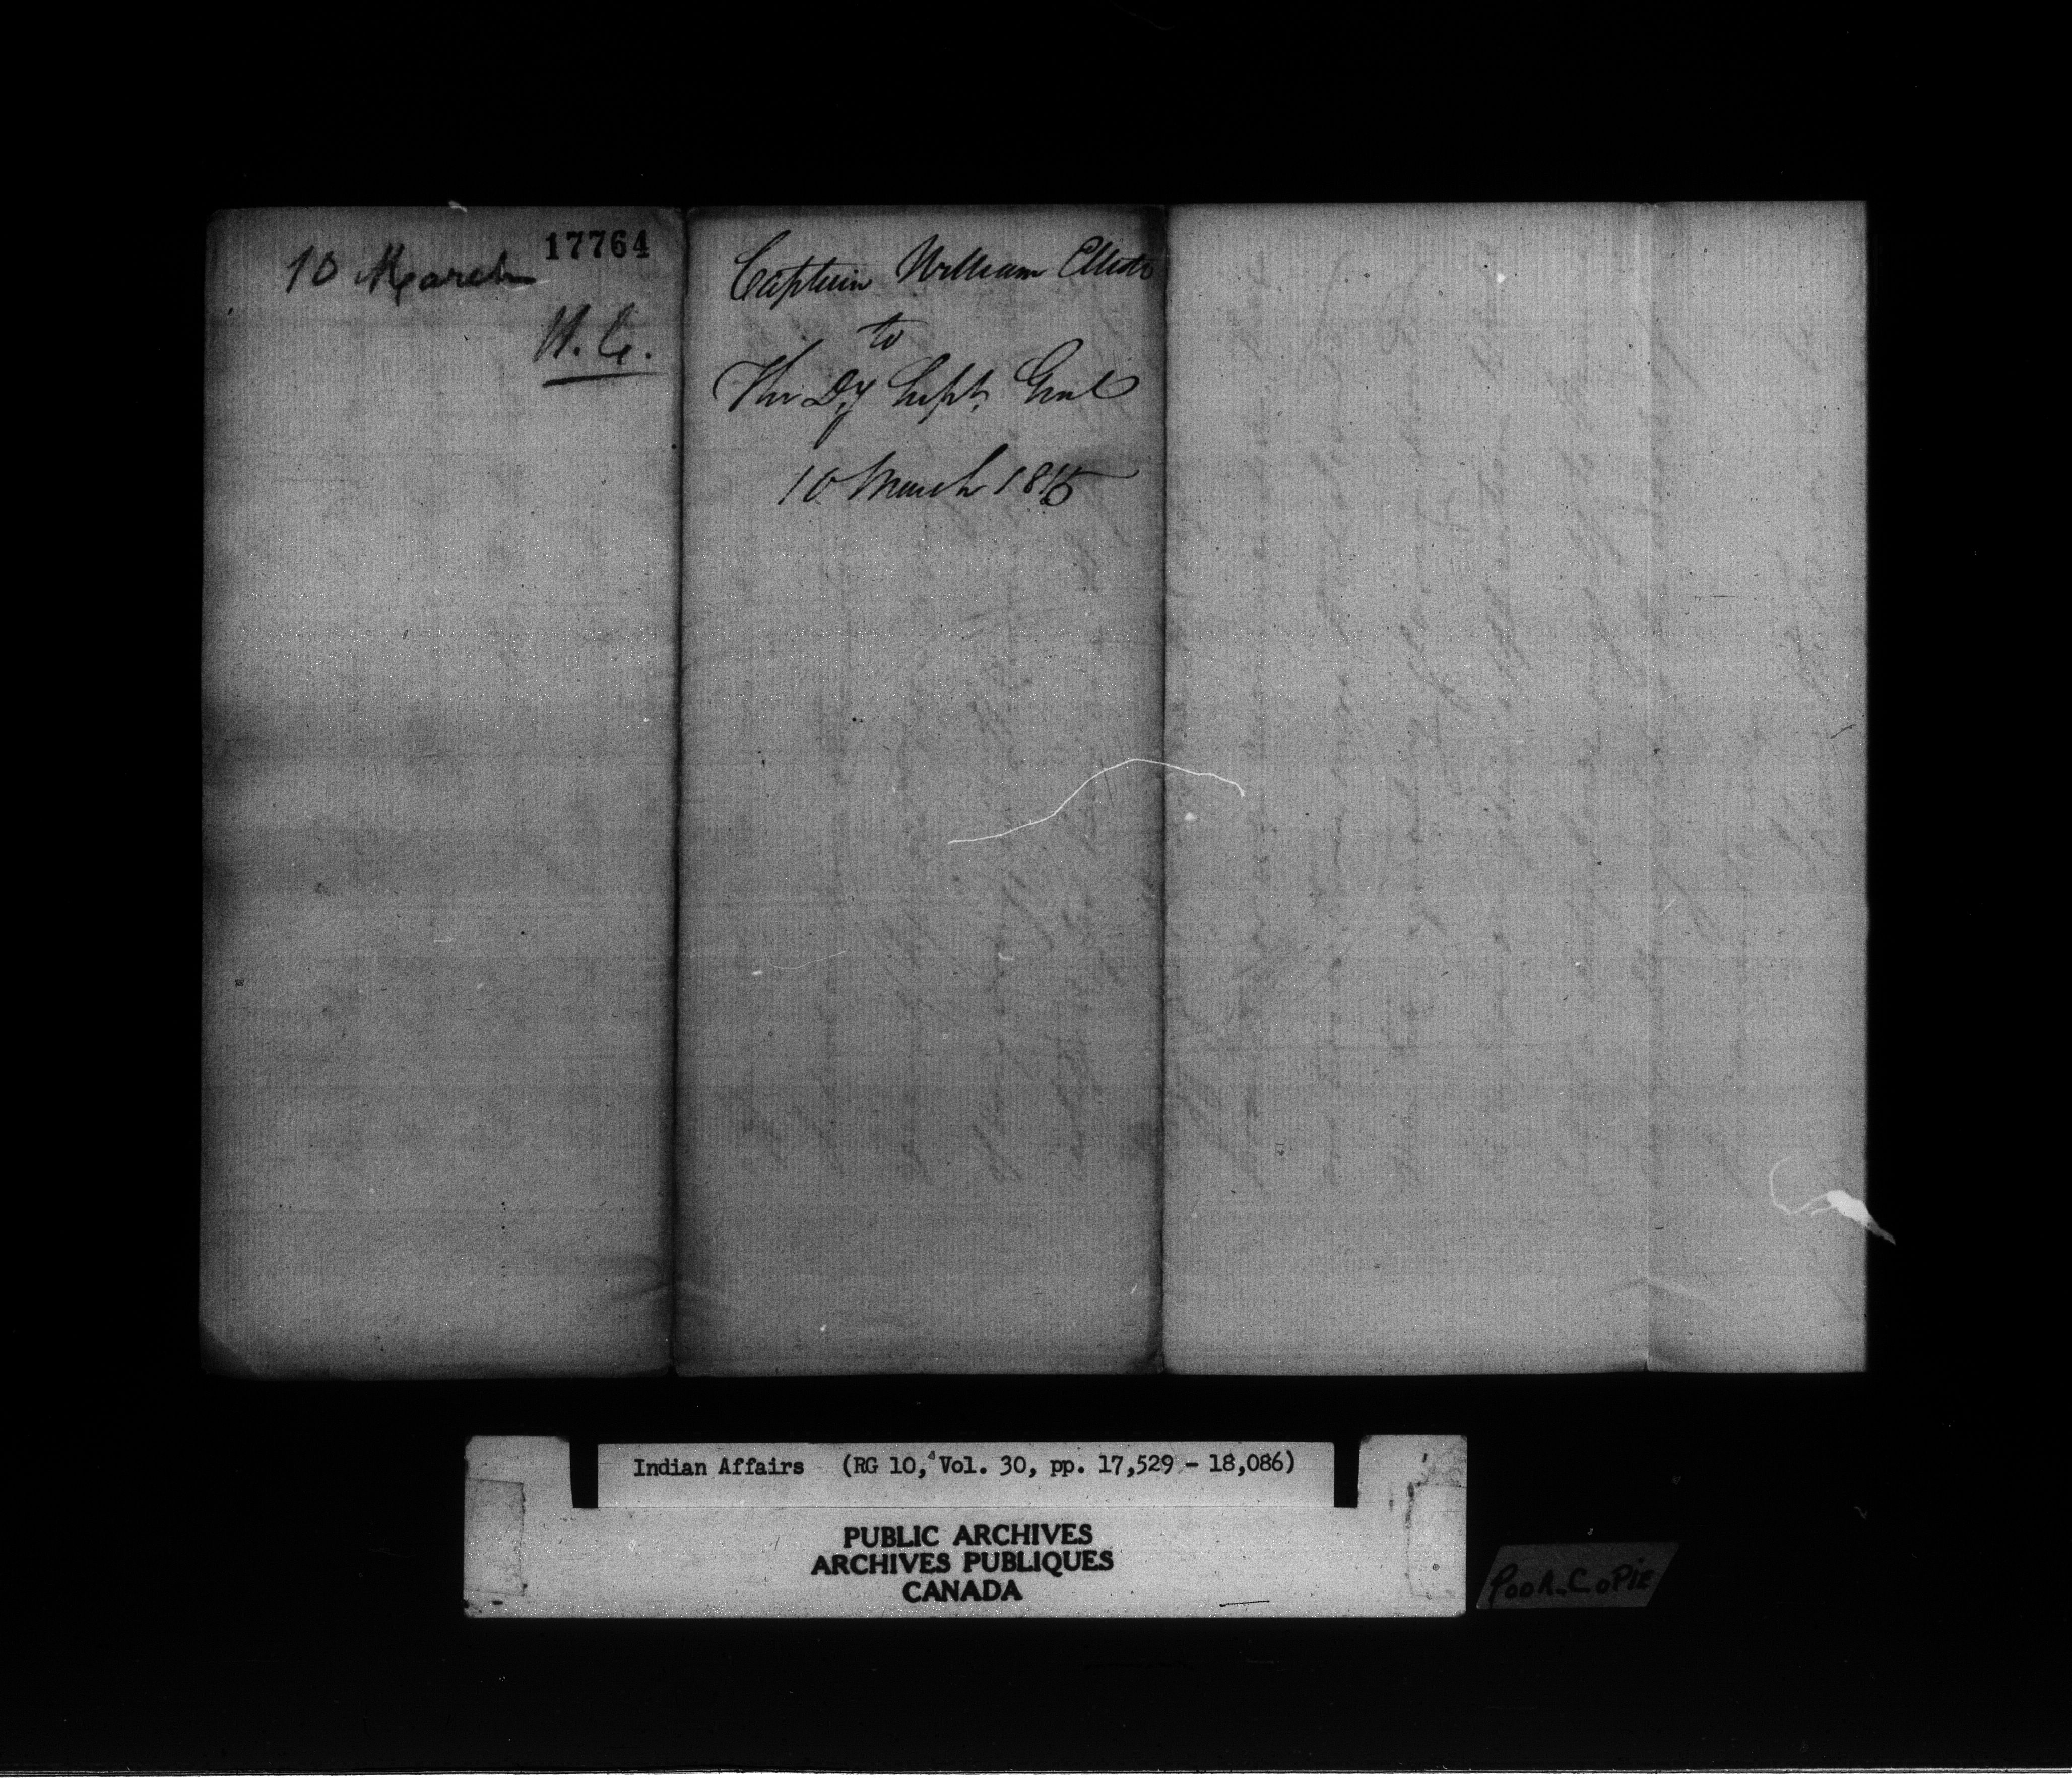 17764
10 March
U.C.
Captain William Elliott
to
The Dy Supt. Genl
10 March 1815
Indian Affairs (RG 10, Vol. 30, pp. 17,529 - 18,086)
PUBLIC ARCHIVES
ARCHIVES PUBLIQUES
CANADA
POOR COPIE